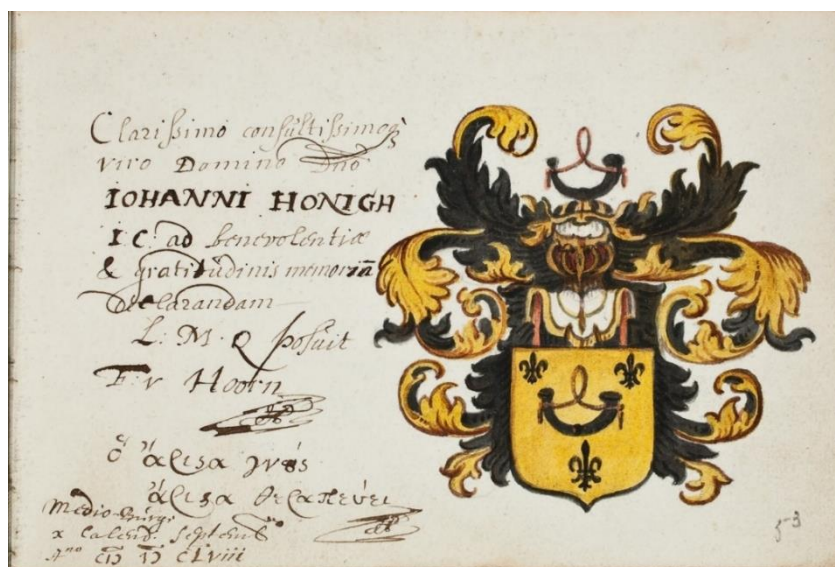 Clarissimo consultissimoq;
viro Domino Dno
IOHANNI HONIGH
I C. ad benevolentiæ
& gratitudinis memoriā
declarandam
L. M. Q posuit
F. v Hoorn
ὁ ἄριστα γνοὺς
ἄριστα θεραπεύει
Medio-burgi
x calend. Septemb
Aⁿⁿᵒ
53